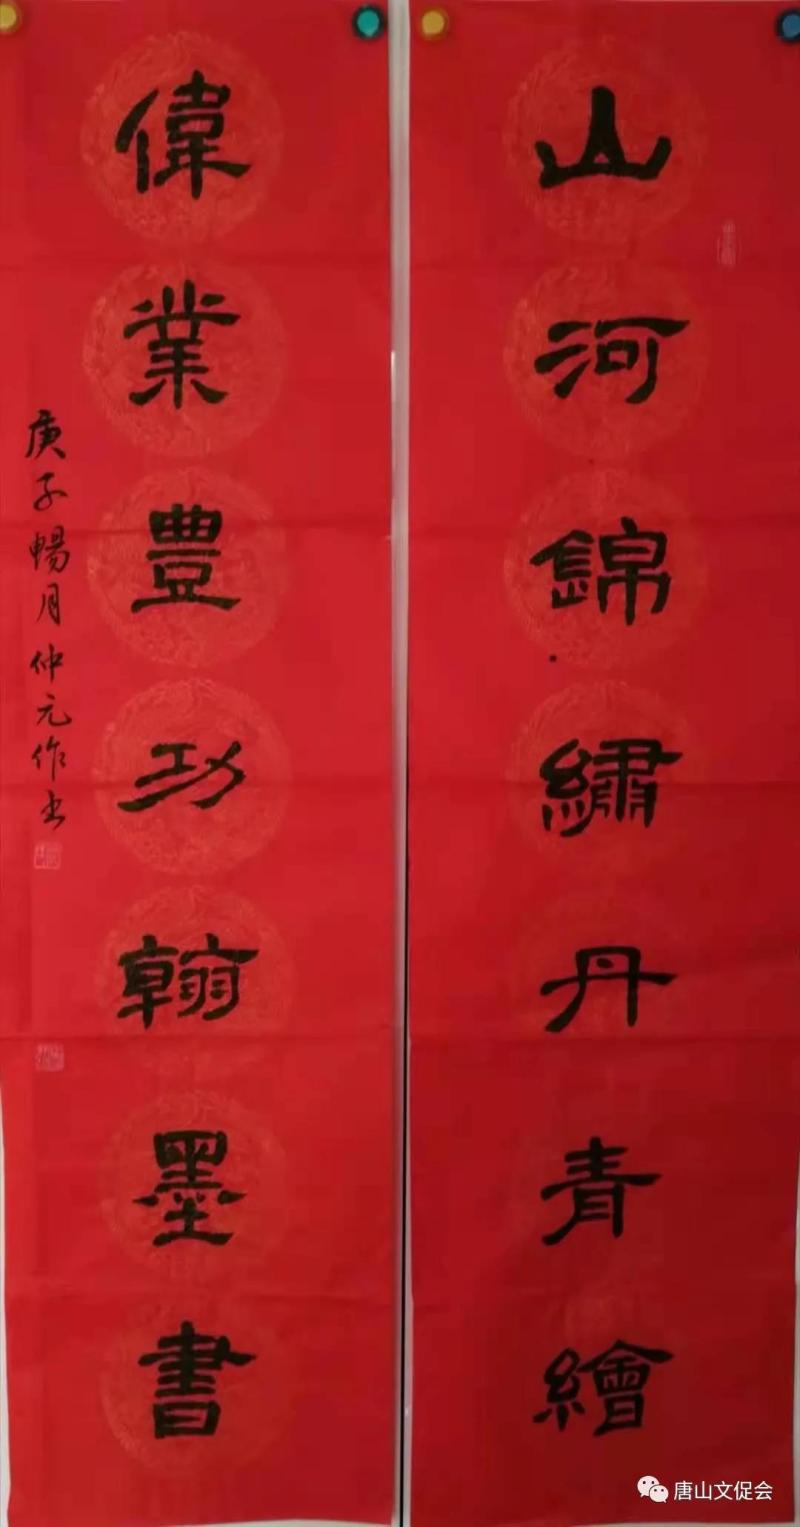 山河錦繡丹青繪
偉業豊功翰墨書
庚子暢月仲元作书
唐山文促会